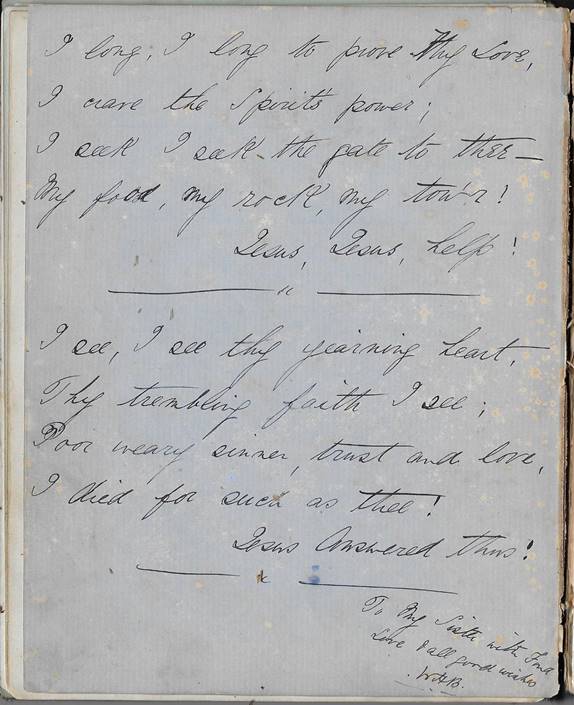 I long, I long to prove Thy Love,
I crave the Spirit's power;
I seek I seek the gate to thee —
My food, my rock, my tow'r!
Jesus, Jesus, help!
I see, I see thy yearning heart,
Thy trembling faith I see;
Poor weary sinner, trust and love,
I died for such as thee!
Jesus Answered thus!
To My Sister with Fond
Love & all good wishes
W.H.B.